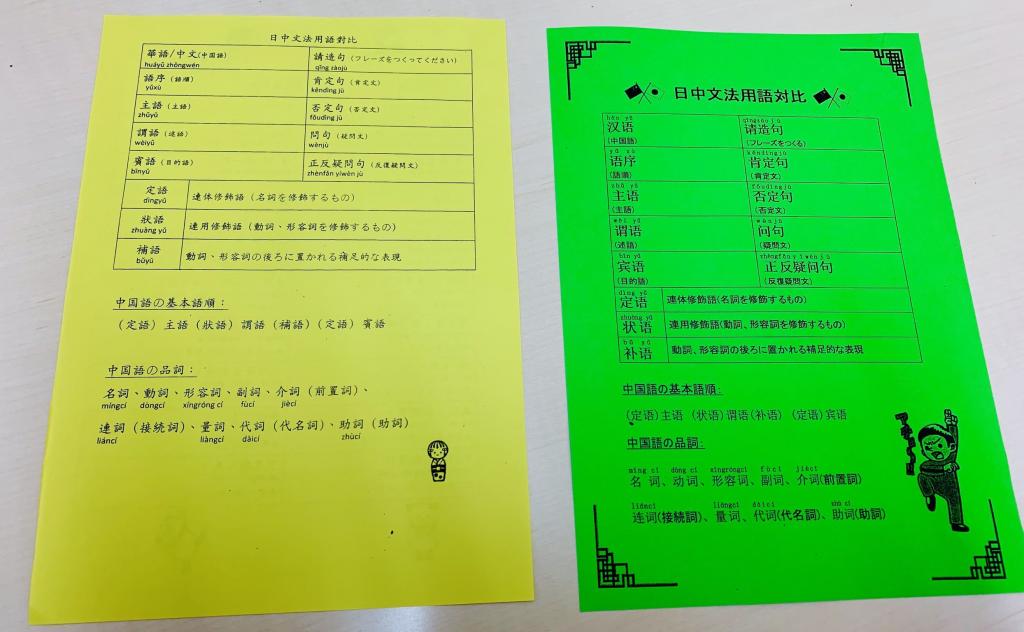 日中文法用語對比
華語/中文(中国語) 請造句 (フレーズをつくってください)
huáyǔ zhōngwén qǐng zàojù
語序 (語順) 肯定句 (肯定文)
yǔxù kěndìng jù
主語 (主語) 否定句 (否定文)
zhǔyǔ fǒudìng jù
謂語 (述語) 問句 (疑問文)
wèiyǔ wènjù
賓語 (目的語) 正反疑問句 (反復疑問文)
bīnyǔ zhènfǎn yíwèn jù
定語 連体修飾語 (名詞を修飾するもの)
dìngyǔ
狀語 連用修飾語 (動詞、形容詞を修飾するもの)
zhuàng yǔ
補語 動詞、形容詞の後ろに置かれる補足的な表現
bǔyǔ
中国語の基本語順：
(定語) 主語 (狀語) 謂語 (補語) (定語) 賓語
中国語の品詞：
名詞、動詞、形容詞、副詞、介詞 (前置詞)、
míngcí dòngcí xíngróng cí fùcí jiècí
連詞 (接続詞)、量詞、代詞 (代名詞)、助詞 (助詞)
liáncí liàngcí dàicí zhùcí
日中文法用語対比
hàn yǔ qǐngzào jù
汉语 请造句
(中国語) (フレーズをつくる)
yǔ xù kěndìngjù
语序 肯定句
(語順) (肯定文)
zhǔ yǔ fǒudìngjù
主语 否定句
(主語) (否定文)
wèi yǔ wènjù
谓语 问句
(述語) (疑問文)
bīn yǔ zhèngfǎnyíwènjù
宾语 正反疑问句
(目的語) (反復疑問文)
dìng yǔ
定语 連体修飾語(名詞を修飾するもの)
zhuàng yǔ
状语 連用修飾語(動詞、形容詞を修飾するもの)
bǔ yǔ
补语 動詞、形容詞の後ろに置かれる補足的な表現
中国語の基本語順:
(定语)主语 (状语)谓语(补语) (定语)宾语
中国語の品詞:
míng cí dòng cí xíngróngcí fùcí jiècí
名词、动词、形容词、副词、介词(前置詞)
liáncí liàngcí dàicí zhù cí
连词(接続詞)、量词、代词(代名詞)、助词(助詞)